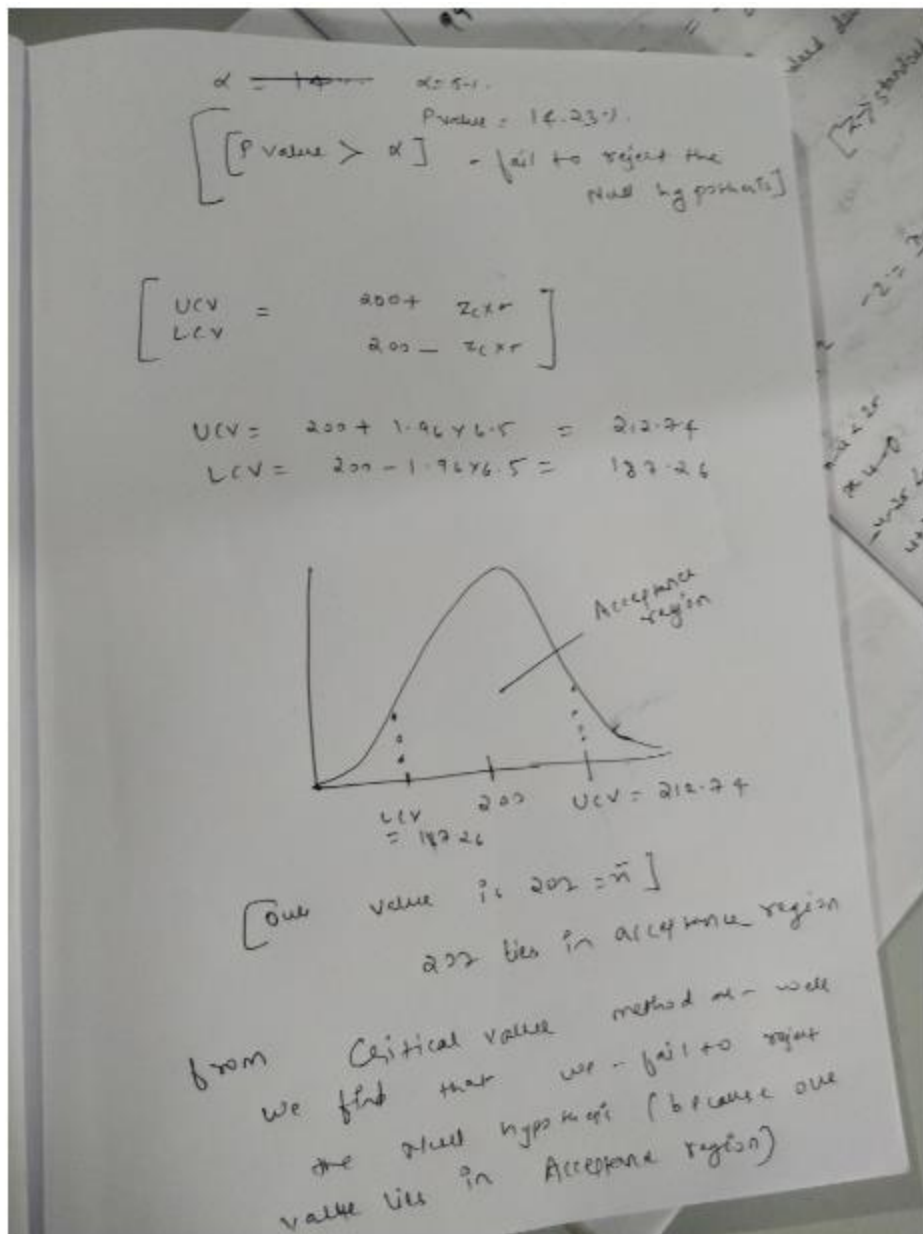 α = 14 α = 5%.
P value = 14.23%.
[P value > α] - fail to reject the
Null hypothesis]
UCV = 200+ Zc×σ
LCV 200 - Zc×σ
UCV = 200 + 1.96×6.5 = 212.74
LCV = 200 - 1.96×6.5 = 187.26
Acceptance
region
LCV 200 UCV = 212.74
= 187.26
[Our value is 207 = x̄]
207 lies in acceptance region
from Critical value method as - well
we find that we - fail to reject
the Null hypothesis (because our
value lies in Acceptance region)
99
[Z → standard
-2 =